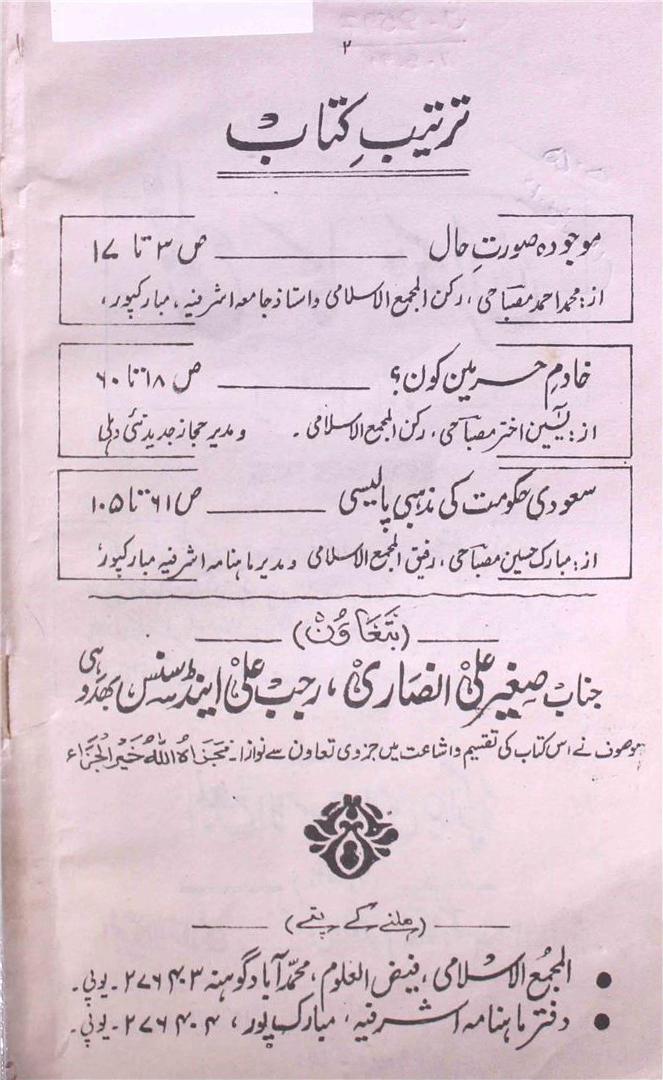 ۲
ترتیبِ کتاب
موجودہ صورتِ حال ــــــــــ ص ۳ تا ۱۷
از: محمد احمد مصباحی، رکن المجمع الاسلامی و استاذ جامعہ اشرفیہ، مبارکپور،
خادمِ حرمین کون؟ ــــــــــ ص ۱۸ تا ۶۰
از: یٰسٓین اختر مصباحی، رکن المجمع الاسلامی ۔ و مدیر حجاز جدید نئی دہلی
سعودی حکومت کی مذہبی پالیسی ــــــــــ ص ۶۱ تا ۱۰۵
از: مبارک حسین مصباحی، رفیق المجمع الاسلامی و مدیر ماہنامہ اشرفیہ مبارکپور،
ــــــ (بتعَاوُن) ــــــ
جناب صغیر علی انصاری، رجب علی اینڈ سنس بھدوہی
موصوف نے اس کتاب کی تقسیم و اشاعت میں جزوی تعاون سے نوازا۔ فجزاہ اللہ خیر الجزاء
ــــــ (ملنے کے پتے) ــــــ
• المجمع الاسلامی، فیض العلوم، محمدآباد گوہنہ ۲۷۶۴۰۳۔ یوپی۔
• دفتر ماہنامہ اشرفیہ، مبارک پور، ۲۷۶۴۰۴۔ یوپی۔